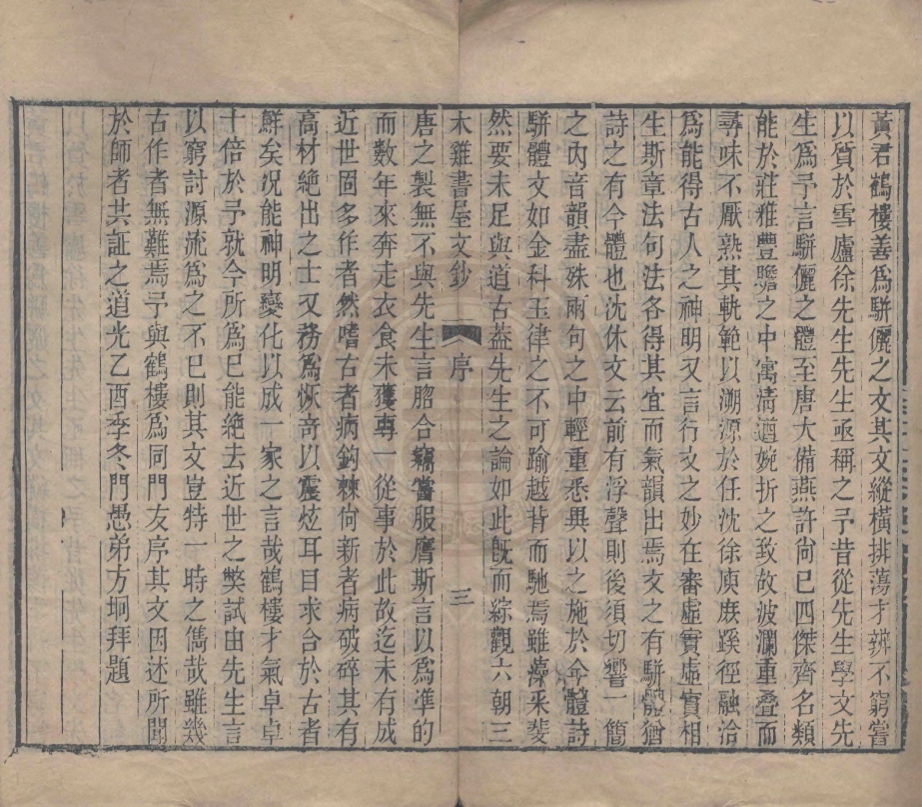 黃君鶴樓善爲駢儷之文其文縱橫排蕩才辨不窮嘗
以質於雪廬徐先生先生亟稱之予昔從先生學文先
生爲予言駢儷之體至唐大備燕許尙已四傑齊名類
能於莊雅豐贍之中寓淸遒婉折之致故波瀾重叠而
尋味不厭熟其軌範以溯源於任沈徐庾庶蹊徑融洽
爲能得古人之神明又言行文之妙在審虛實虛實相
生斯章法句法各得其宜而氣韻出焉文之有駢體猶
詩之有今體也沈休文云前有浮聲則後須切響一簡
之內音韻盡殊兩句之中輕重悉異以之施於今體詩
駢體文如金科玉律之不可踰越背而馳焉雖藻采斐
然要未足與道古葢先生之論如此旣而綜觀六朝三
木雞書屋文鈔 序 三
唐之製無不與先生言脗合竊嘗服膺斯言以爲準的
而數年來奔走衣食未獲專一從事於此故迄未有成
近世固多作者然嗜古者病鉤棘尙新者病破碎其有
高材絶出之士又務爲恢奇以震炫耳目求合於古者
鮮矣况能神明變化以成一家之言哉鶴樓才氣卓卓
十倍於予就今所爲已能絶去近世之獘試由先生言
以窮討源流爲之不已則其文豈特一時之儁哉雖幾
古作者無難焉予與鶴樓爲同門友序其文因述所聞
於師者共証之道光乙酉季冬門愚弟方坰拜題